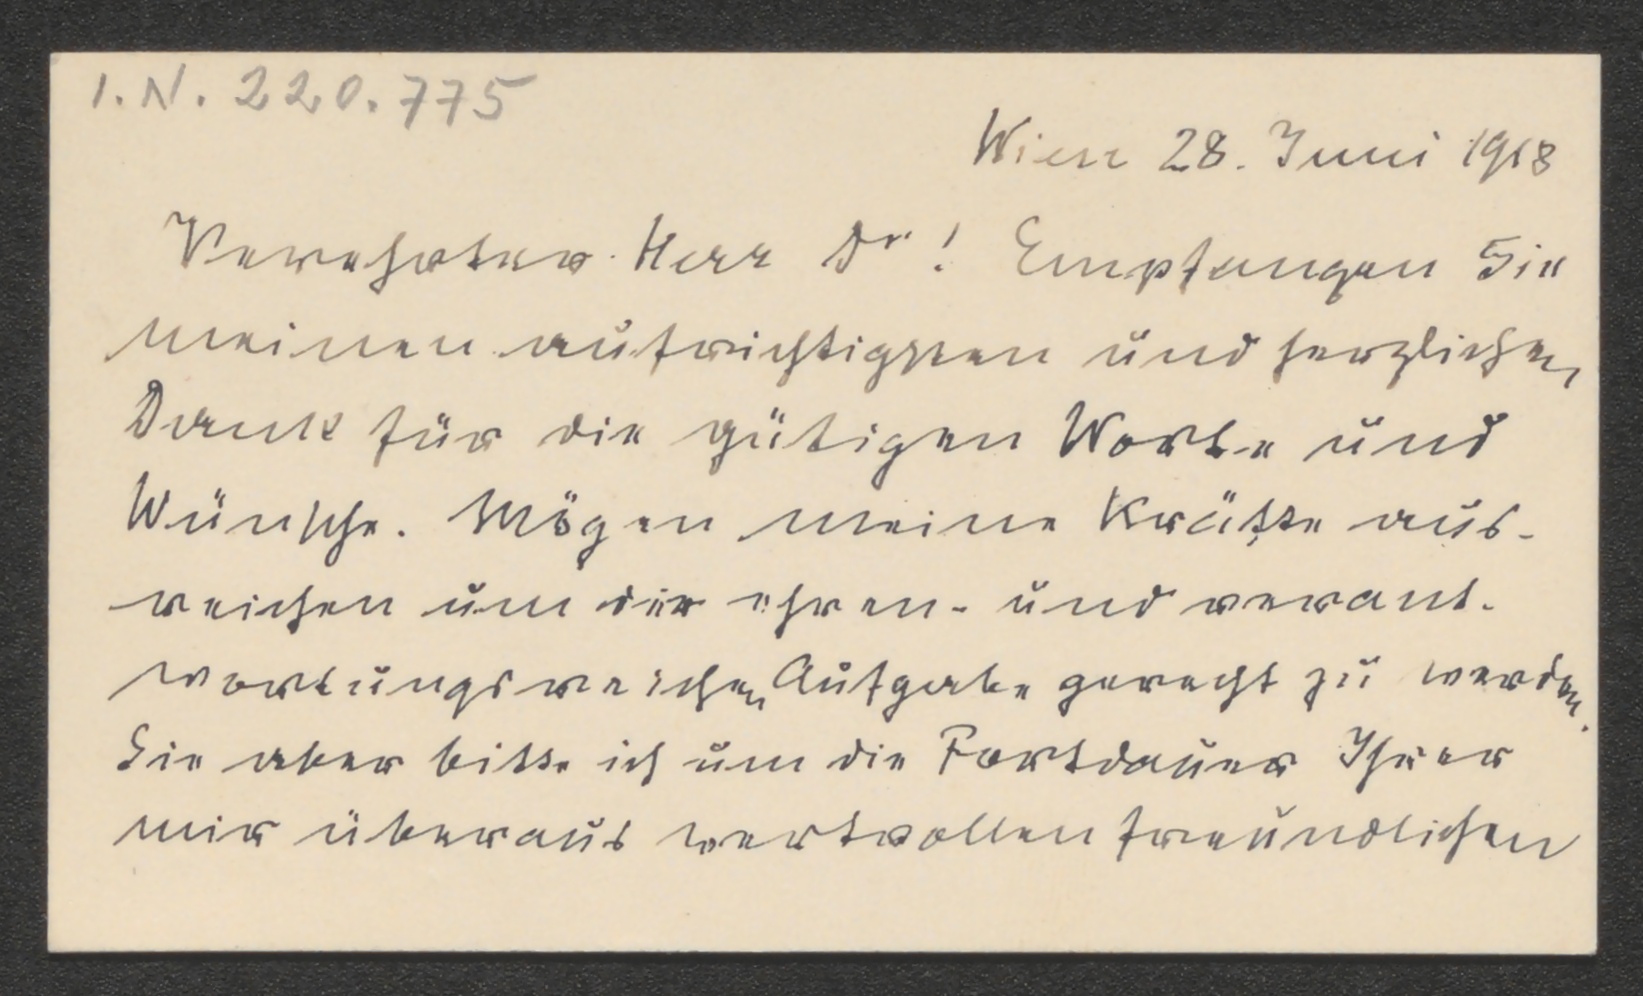 I.N. 220.775
Wien 28. Juni 1918
Verehrter Herr Dr! Empfangen Sie
meinen aufrichtigsten und herzlichen
Dank für die gütigen Worte und
Wünsche. Mögen meine Kräfte aus-
reichen um der ehren- und verant-
wortungsreichen Aufgabe gerecht zu werden.
Sie aber bitte ich um die Fortdauer Ihrer
mir überaus wertvollen freundlichen